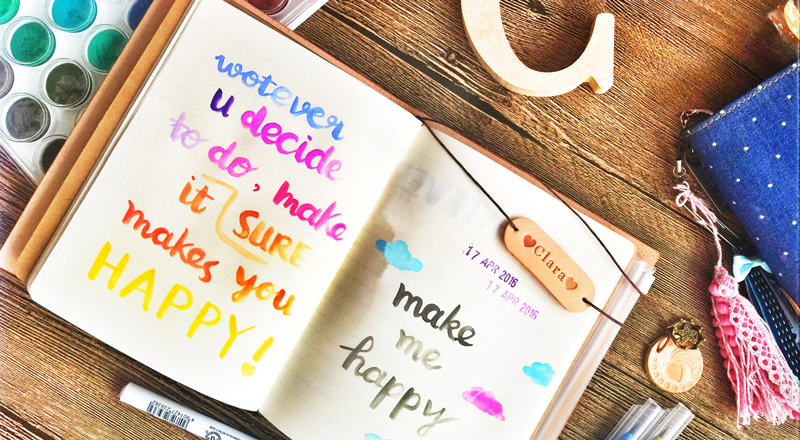 wotever
u decide
to do, make
it SURE
makes you
HAPPY!
17 APR 2016
17 APR 2016
Clara
make
me
happy